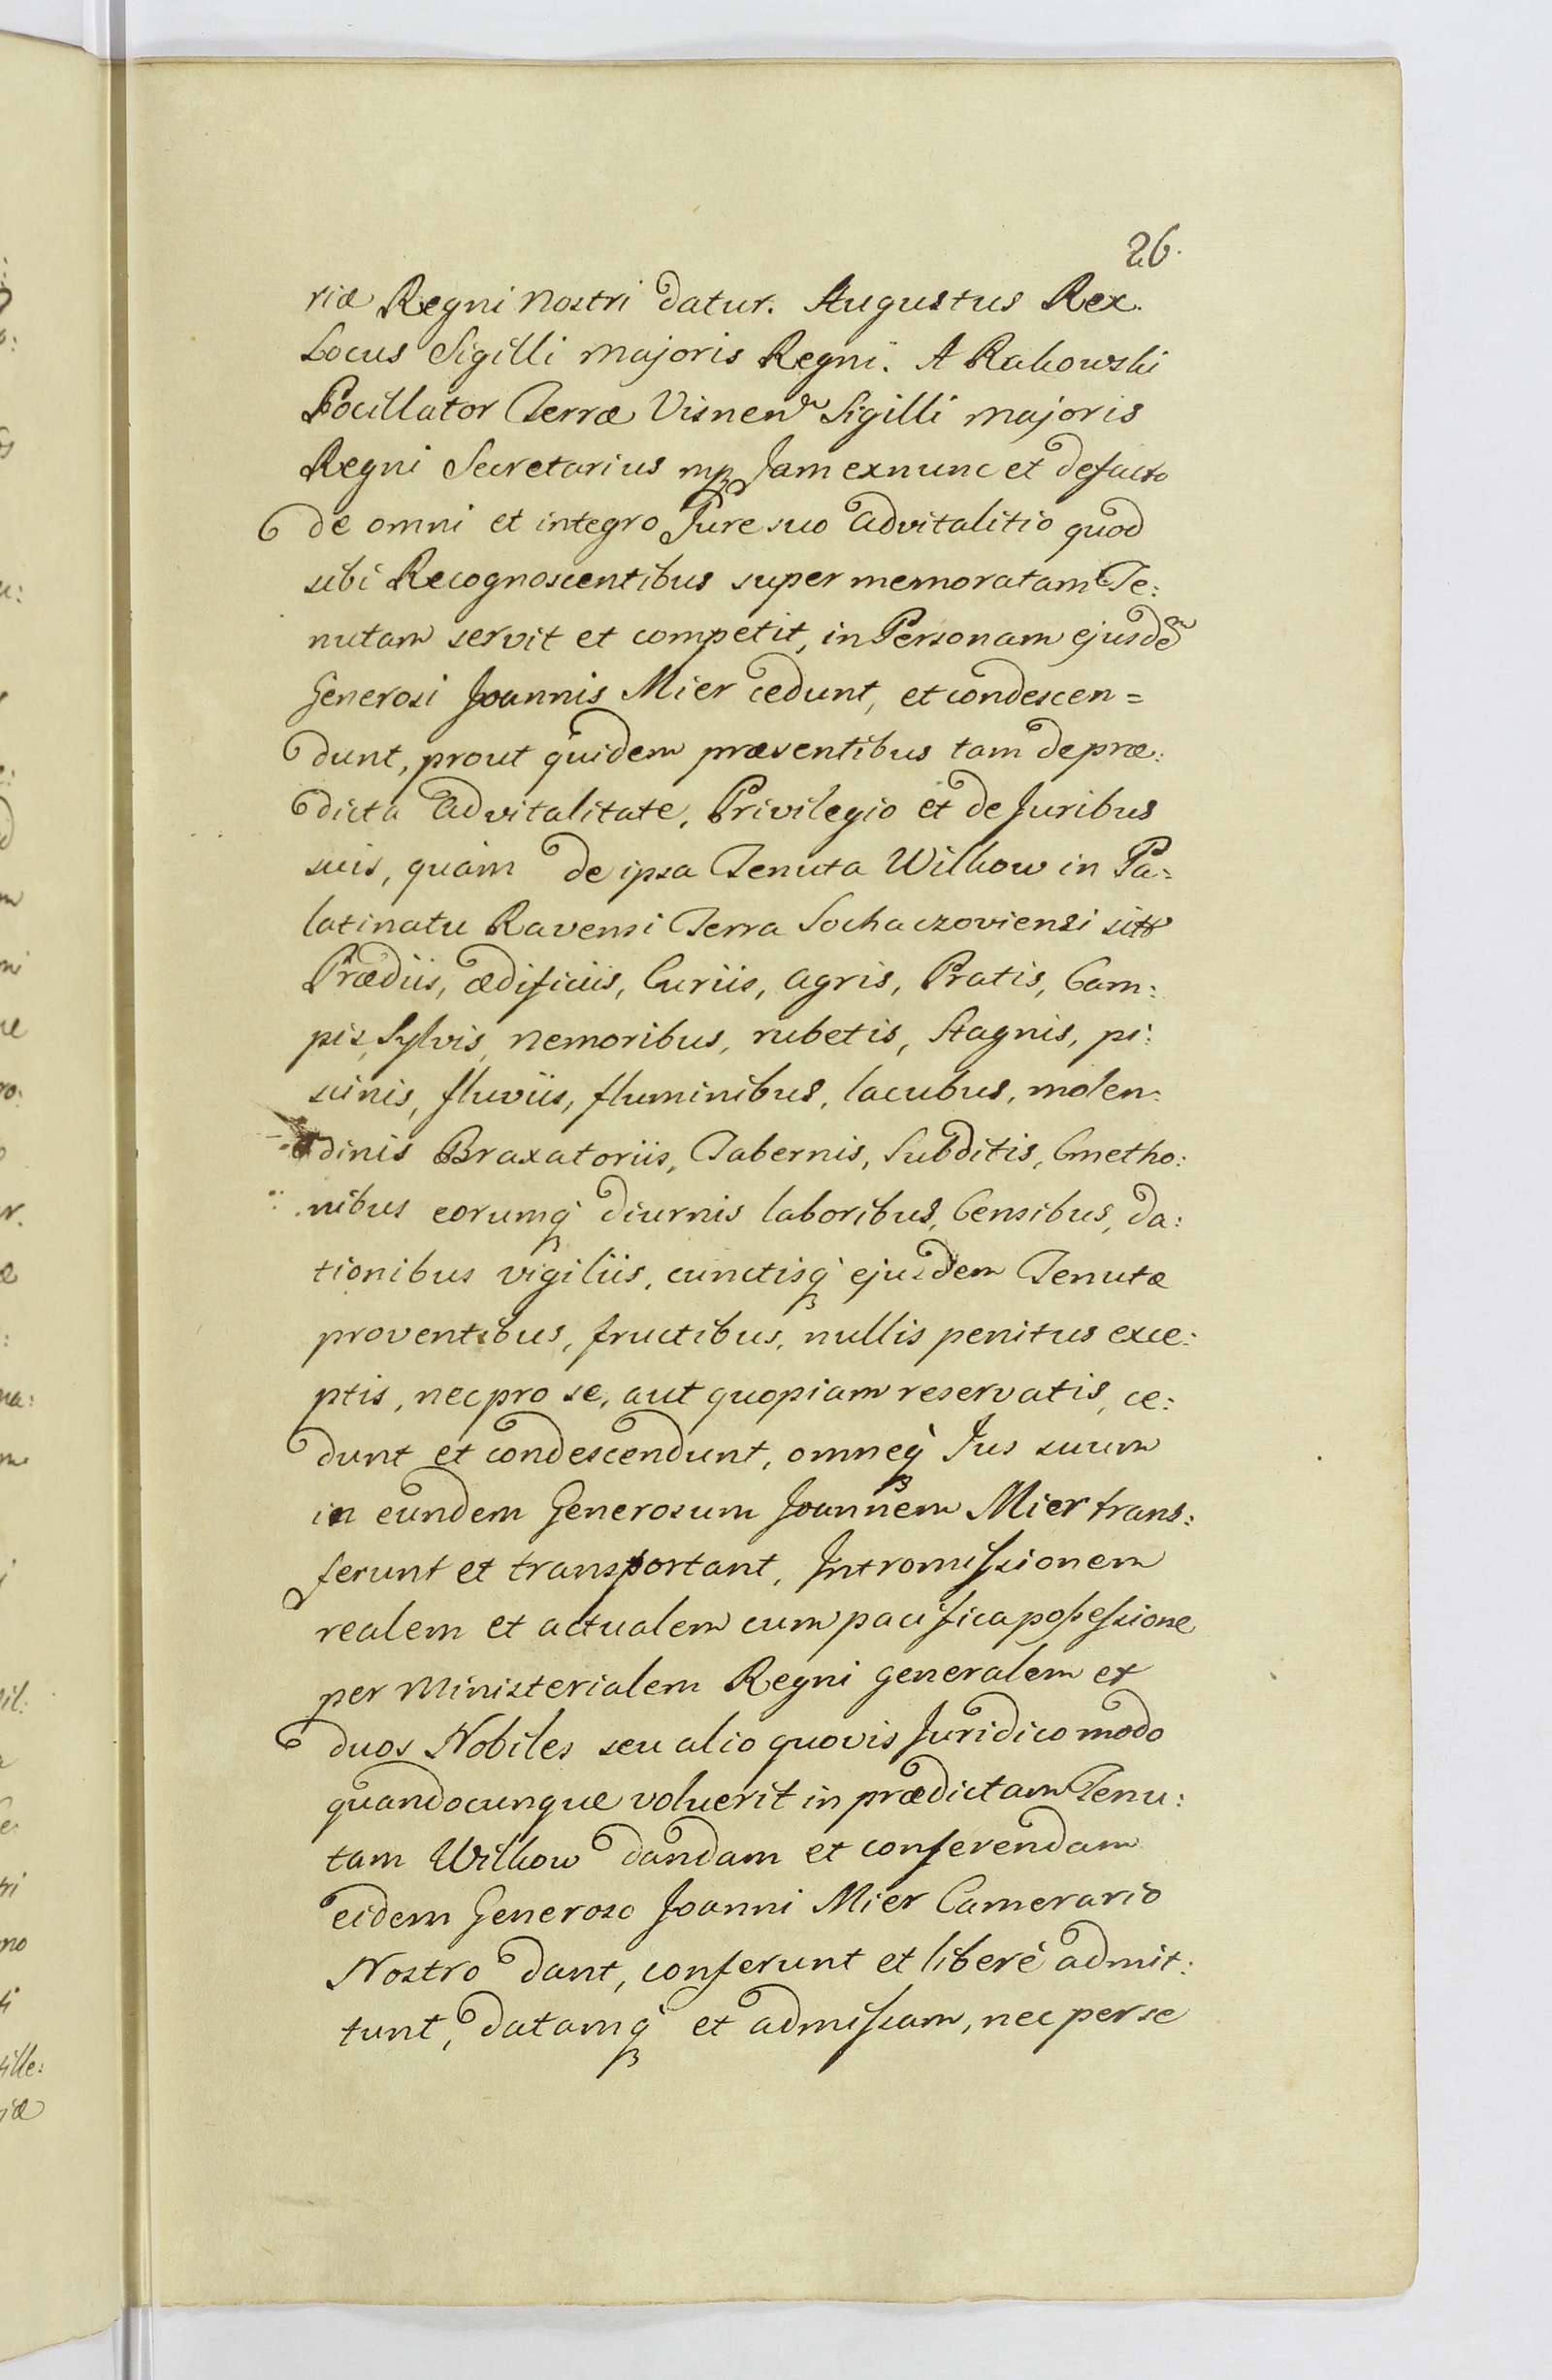 26.
riæ Regni Nostri datur. Augustus Rex.
Locus Sigilli Majoris Regni. A Rakowski
Pocillator Terræ Visnen Sigilli Majoris
Regni Secretarius mp Jam exnunc et defacto
de omni et integro Jure suo advitalitio quod
sibi Recognoscentibus super memoratam Te:
nutam servit et competit, in Personam ejusdem
Generosi Joannis Mier cedunt, et condescen=
dunt, prout quidem præsentibus tam de præ:
dicta advitalitate, Privilegio et de Juribus
suis, quàm de ipsa Tenuta Wilkow in Pa=
latinatu Ravensi Terra Sochaczoviensi sita
Prædiis, ædificiis, Curiis, agris, Pratis, Cam:
pis, Sylvis, nemoribus, rubetis, Stagnis, pi:
scinis, fluviis, fluminibus, lacubus, molen:
dinis Braxatoriis, Tabernis, Subditis, Cmetho:
nibus eorumq diurnis laboribus, Censibus, da:
tionibus vigiliis, cunctisq ejusdem Tenutæ
proventibus, fructibus, nullis penitus exce:
ptis, nec pro se, aut quopiam reservatis, ce:
dunt et condescendunt, omneq Jus suum
in eundem Generosum Joannem Mier trans:
ferunt et transportant, Intromissionem
realem et actualem cum pacifica possessione
per Ministerialem Regni Generalem et
duos Nobiles seu alio quovis Juridico modo
quandocunque voluerit in prædictam Tenu:
tam Wilkow dandam et conferendam
eidem Generoso Joanni Mier Camerario
Nostro dant, conferunt et liberè admit:
tunt, datamq et admissam, nec per se